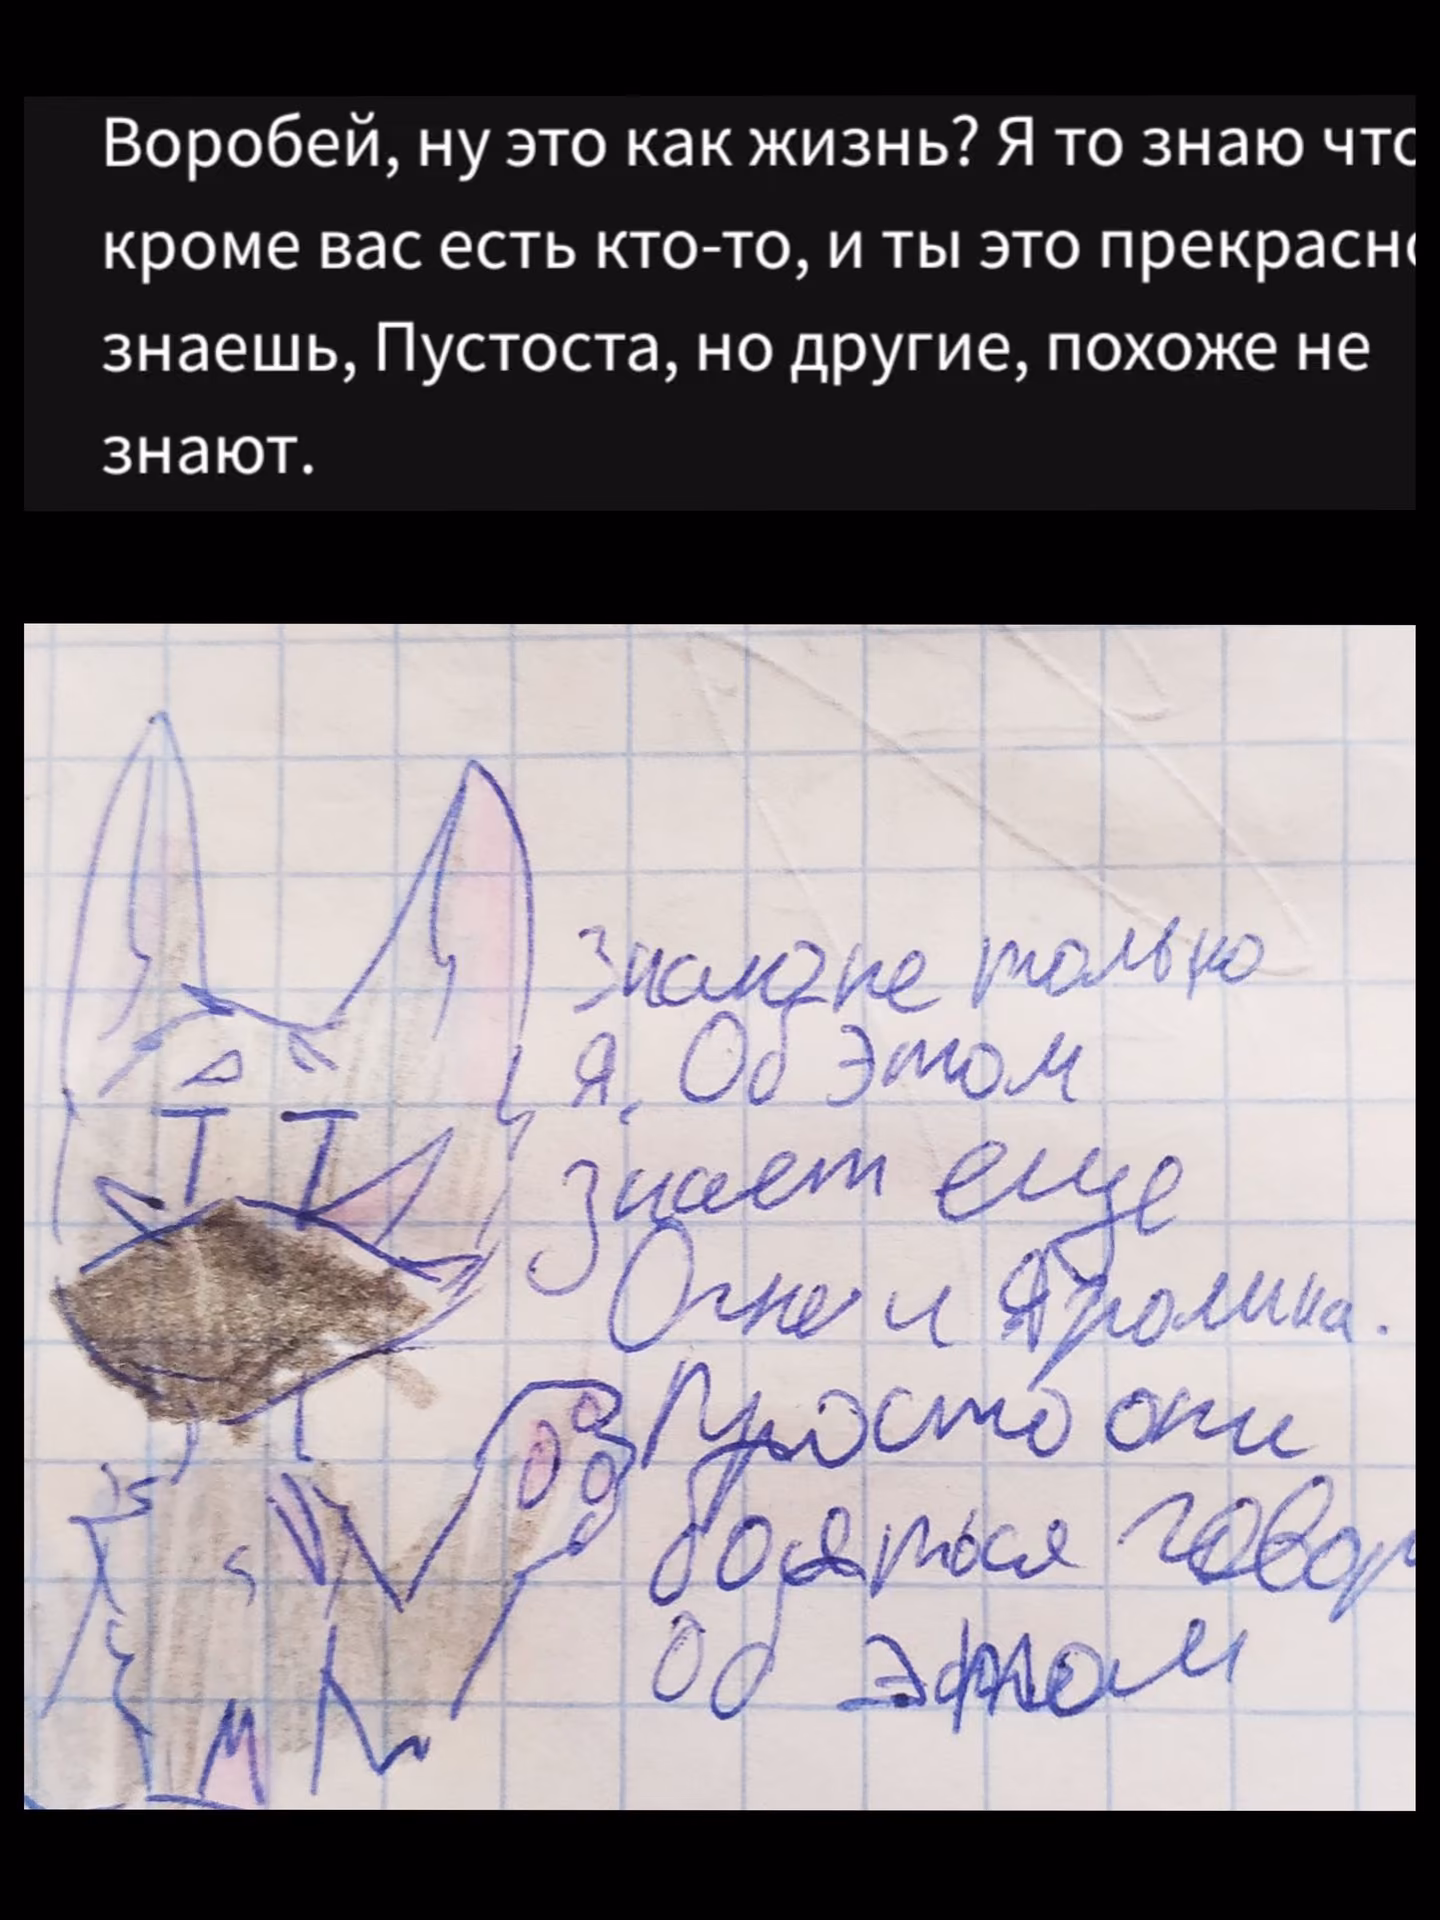 Воробей, ну это как жизнь? Я то знаю что
кроме вас есть кто-то, и ты это прекрасно
знаешь, Пустоста, но другие, похоже не
знают.
Знаю не только
я. Об этом
знает еще
и
Просто они
бояться говор
Об этом